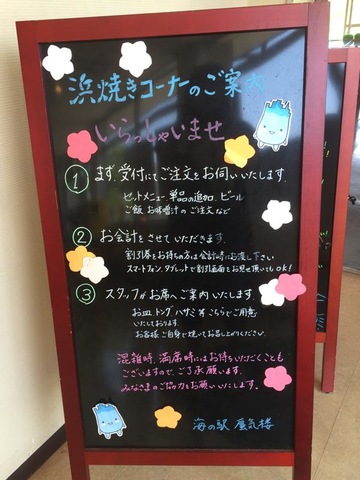 浜焼きコーナーのご案内
いらっしゃいませ
① まず、受付にてご注文をお伺いいたします
セットメニュー、単品の追加、ビール
ご飯、お味噌汁のご注文など
② お会計をさせていただきます。
割引券をお持ちの方は会計時にお渡し下さい
スマートフォン、タブレットで割引画面をお見せ頂いてもOK!
③ スタッフがお席へご案内いたします。
お皿 トング ハサミ等こちらでご用意
いたしております。
お客様ご自身で焼いてお召し上がりください。
混雑時、満席時にはお待ちいただくことも
ございますので、ご了承願います。
みなさまのご協力をお願いいたします。
海の駅 蜃気楼